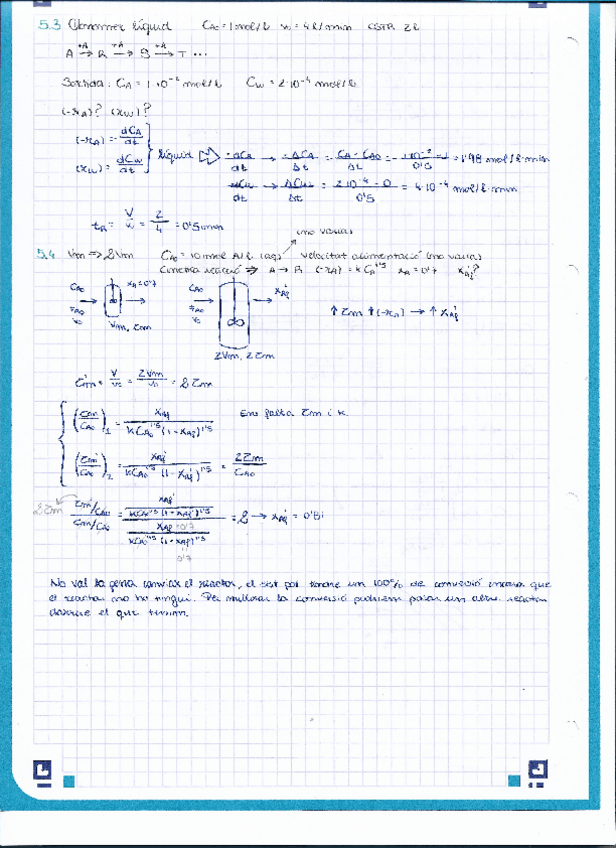 5.3 Monòmer líquid   CAo = 1 mol/L   vo = 4 L/min   CSTR 2L
A →(+A) R →(+A) S →(+A) T ...
Sortida: CA = 1·10⁻² mol/L   Cw = 2·10⁻⁴ mol/L
(-rA)? (rw)?
(-rA) = -dCA/dt
(rw) = dCw/dt
líquid ⇒ -dCA/dt → -ΔCA/Δt = CA - CAo/Δt = -1·10⁻² - 1/0'5 = 1'98 mol/L·min
dCw/dt → ΔCw/Δt = 2·10⁻⁴ - 0/0'5 = 4·10⁻⁴ mol/L·min
tR = V/v = 2/4 = 0'5 min
(no varia)
5.4 Vm ⇒ 2Vm   CAo = 10 mol A/L (aq)   velocitat alimentació (no varia)
Cinètica reacció ⇒ A → R (-rA) = k CA¹'⁵   xA = 0'7   xAf'?
CAo   xA = 0'7   CAo   xAf'
FAo   FAo
vo   Vm, τm   vo
2Vm, 2τm
↑ τm ↑ (-rA) → ↑ xAf'
τm' = V/vo = 2Vm/vo = 2 τm
(τm/CAo)₁ = xAf/kCAo¹'⁵ (1 - xAf)¹'⁵   Ens falta τm i k.
(τm'/CAo)₂ = xAf'/kCAo¹'⁵ (1 - xAf')¹'⁵ = 2τm/CAo
2τm   τm'/CAo/τm/CAo = xAf'/kCAo¹'⁵ (1 - xAf')¹'⁵ / xAf = 0'7/kCAo¹'⁵ (1 - xAf)¹'⁵ = 2 → xAf' = 0'81
0'7
No val la pena canviar el reactor, el pot tenir un 100% de conversió encara que
el reactor no ho tingui. Per millorar la conversió podríem posar un altre reactor
darrere el que tenim.